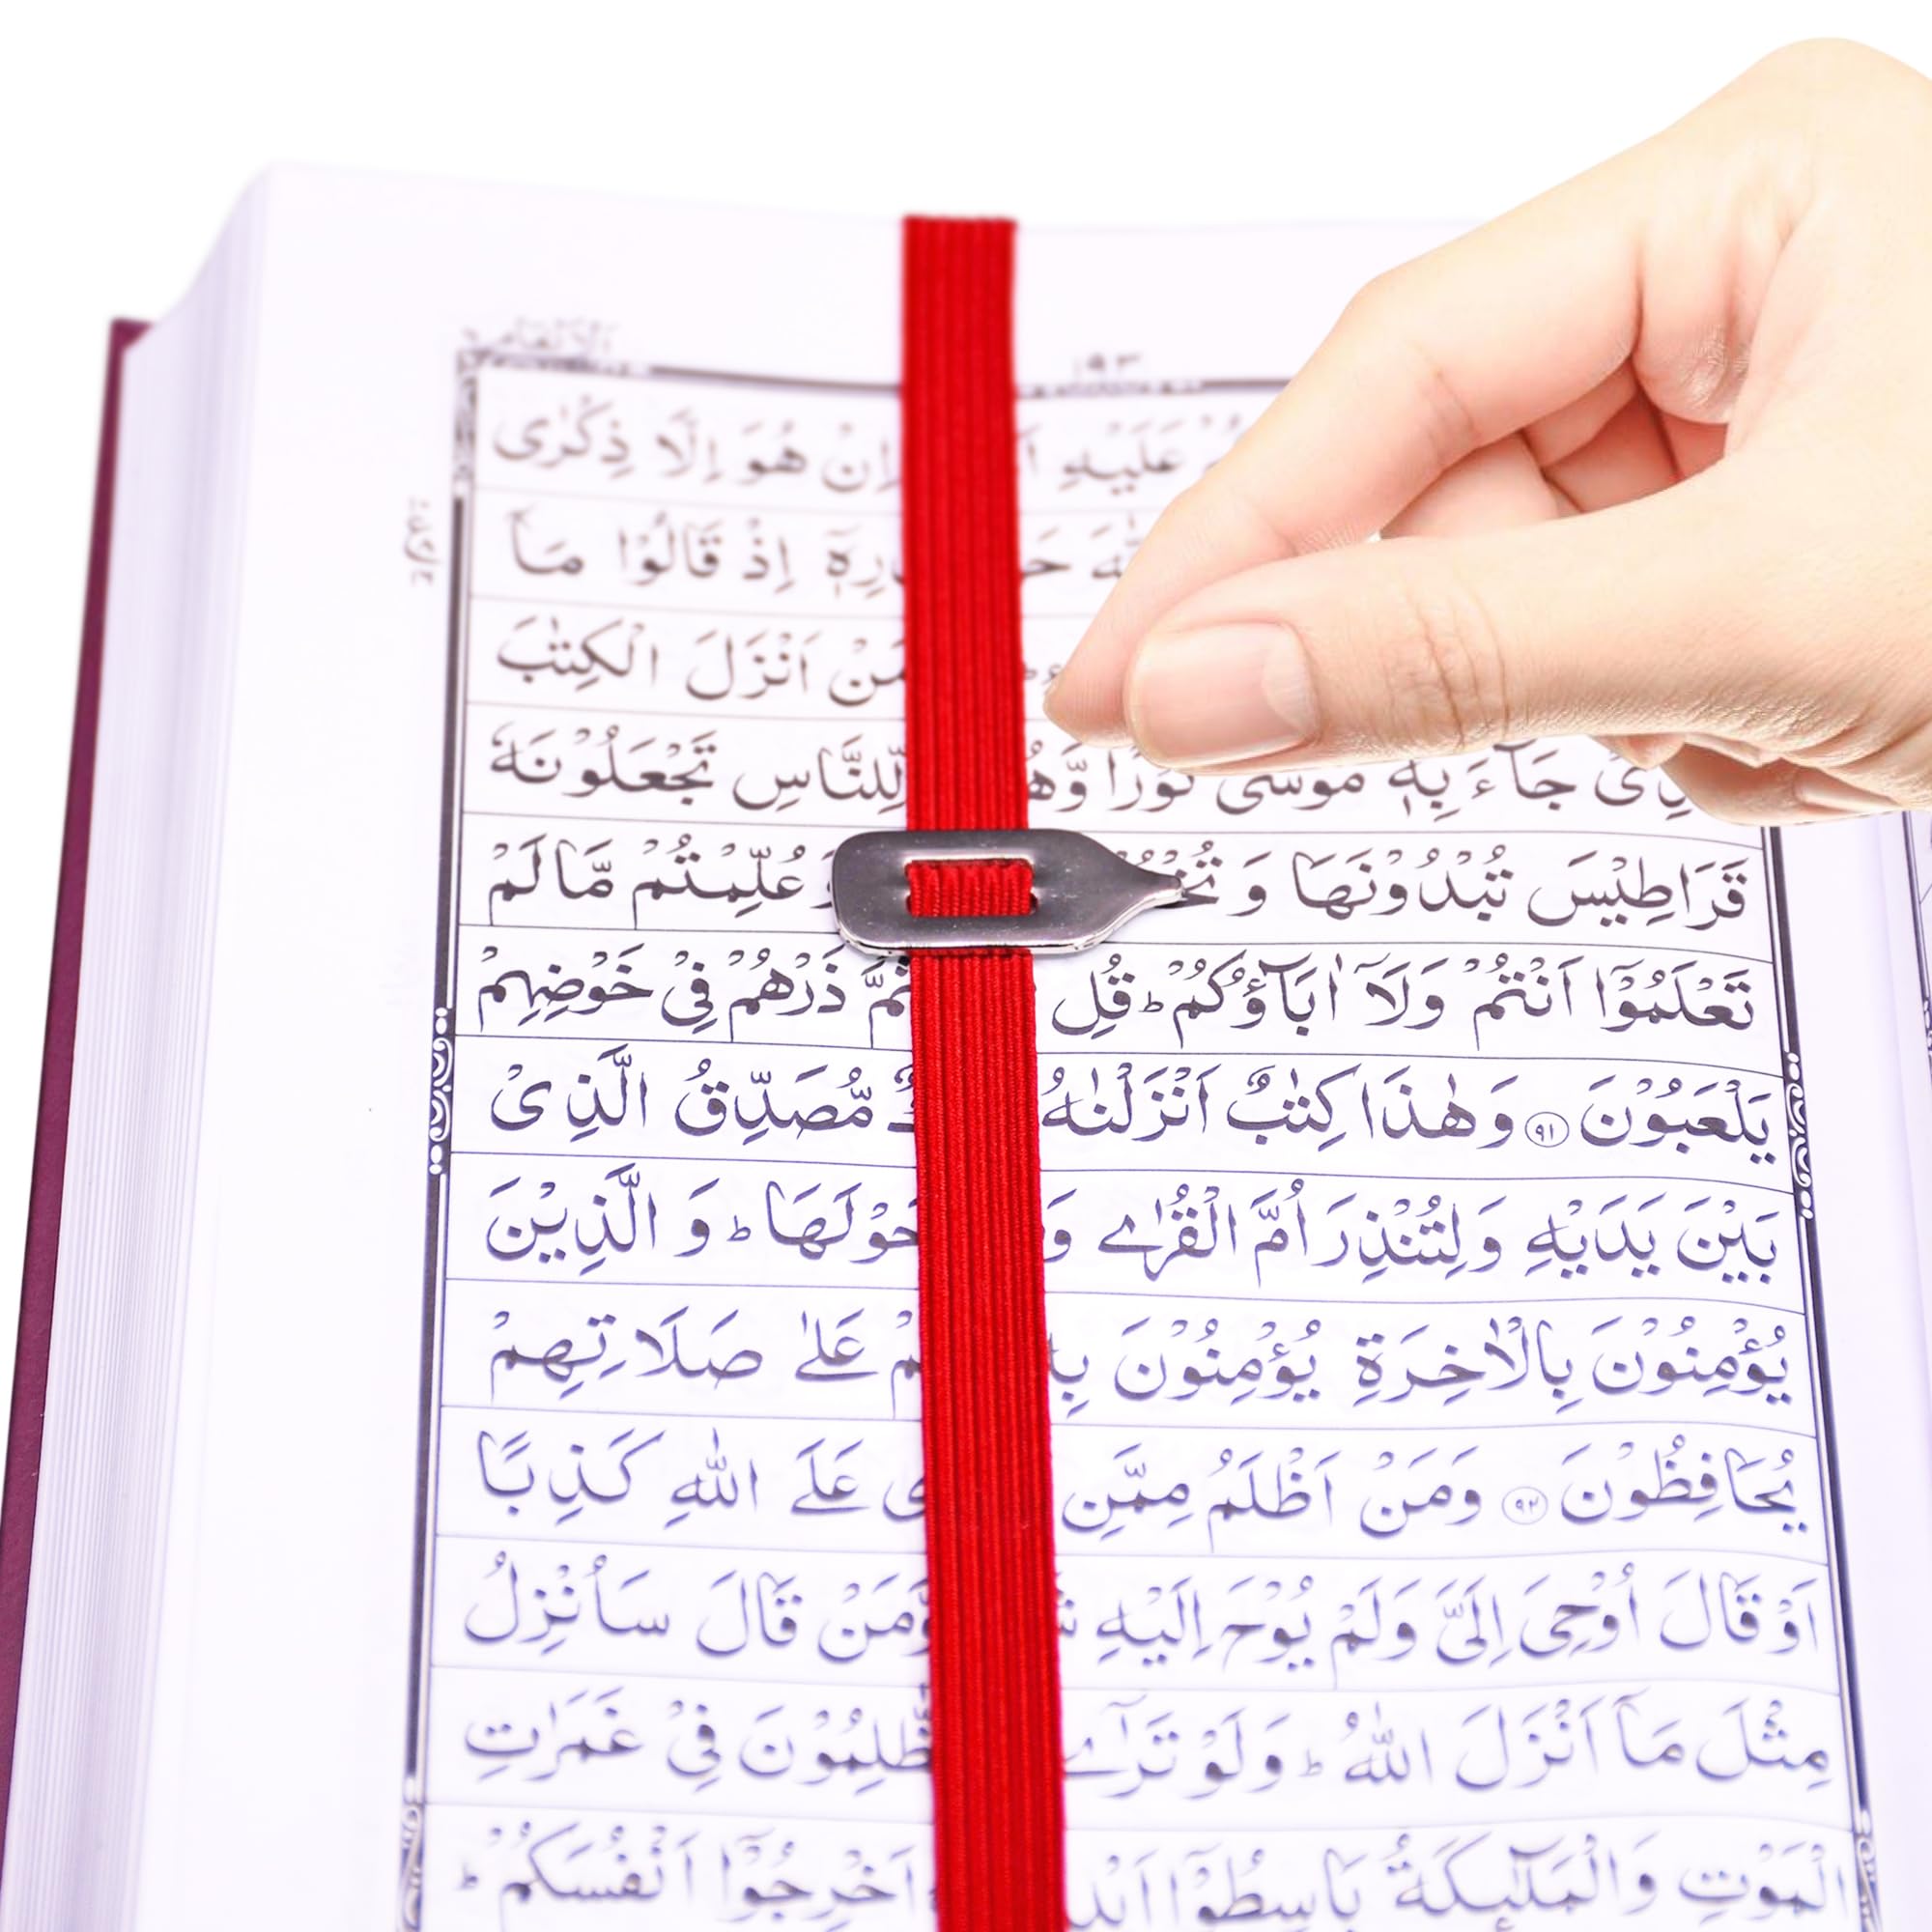 الانعام ٦
١٩٣
عَلَيْهِ اِنْ هُوَ اِلَّا ذِكْرٰى
اِذْ قَالُوْا مَاۤ
مَنْ اَنْزَلَ الْكِتٰبَ
جَآءَ بِهٖ مُوْسٰى نُوْرًا لِّلنَّاسِ تَجْعَلُوْنَهٗ
قَرَاطِيْسَ تُبْدُوْنَهَا وَ عُلِّمْتُمْ مَّا لَمْ
تَعْلَمُوْۤا اَنْتُمْ وَلَاۤ اٰبَآؤُكُمْ ؕ قُلِ ثُمَّ ذَرْهُمْ فِيْ خَوْضِهِمْ
يَلْعَبُوْنَ ٩١ وَهٰذَا كِتٰبٌ اَنْزَلْنٰهُ مُّصَدِّقُ الَّذِيْ
بَيْنَ يَدَيْهِ وَلِتُنْذِرَ اُمَّ الْقُرٰى حَوْلَهَا ؕ وَ الَّذِيْنَ
يُؤْمِنُوْنَ بِالْاٰخِرَةِ يُؤْمِنُوْنَ عَلٰى صَلَاتِهِمْ
يُحَافِظُوْنَ ٩٢ وَمَنْ اَظْلَمُ مِمَّنِ عَلَى اللّٰهِ كَذِبًا
اَوْ قَالَ اُوْحِيَ اِلَيَّ وَلَمْ يُوْحَ اِلَيْهِ وَّمَنْ قَالَ سَاُنْزِلُ
مِثْلَ مَاۤ اَنْزَلَ اللّٰهُ ؕ وَلَوْ تَرٰۤى فِيْ غَمَرٰتِ
الْمَوْتِ وَالْمَلٰٓئِكَةُ بَاسِطُوْۤا اَخْرِجُوْۤا اَنْفُسَكُمْ ؕ